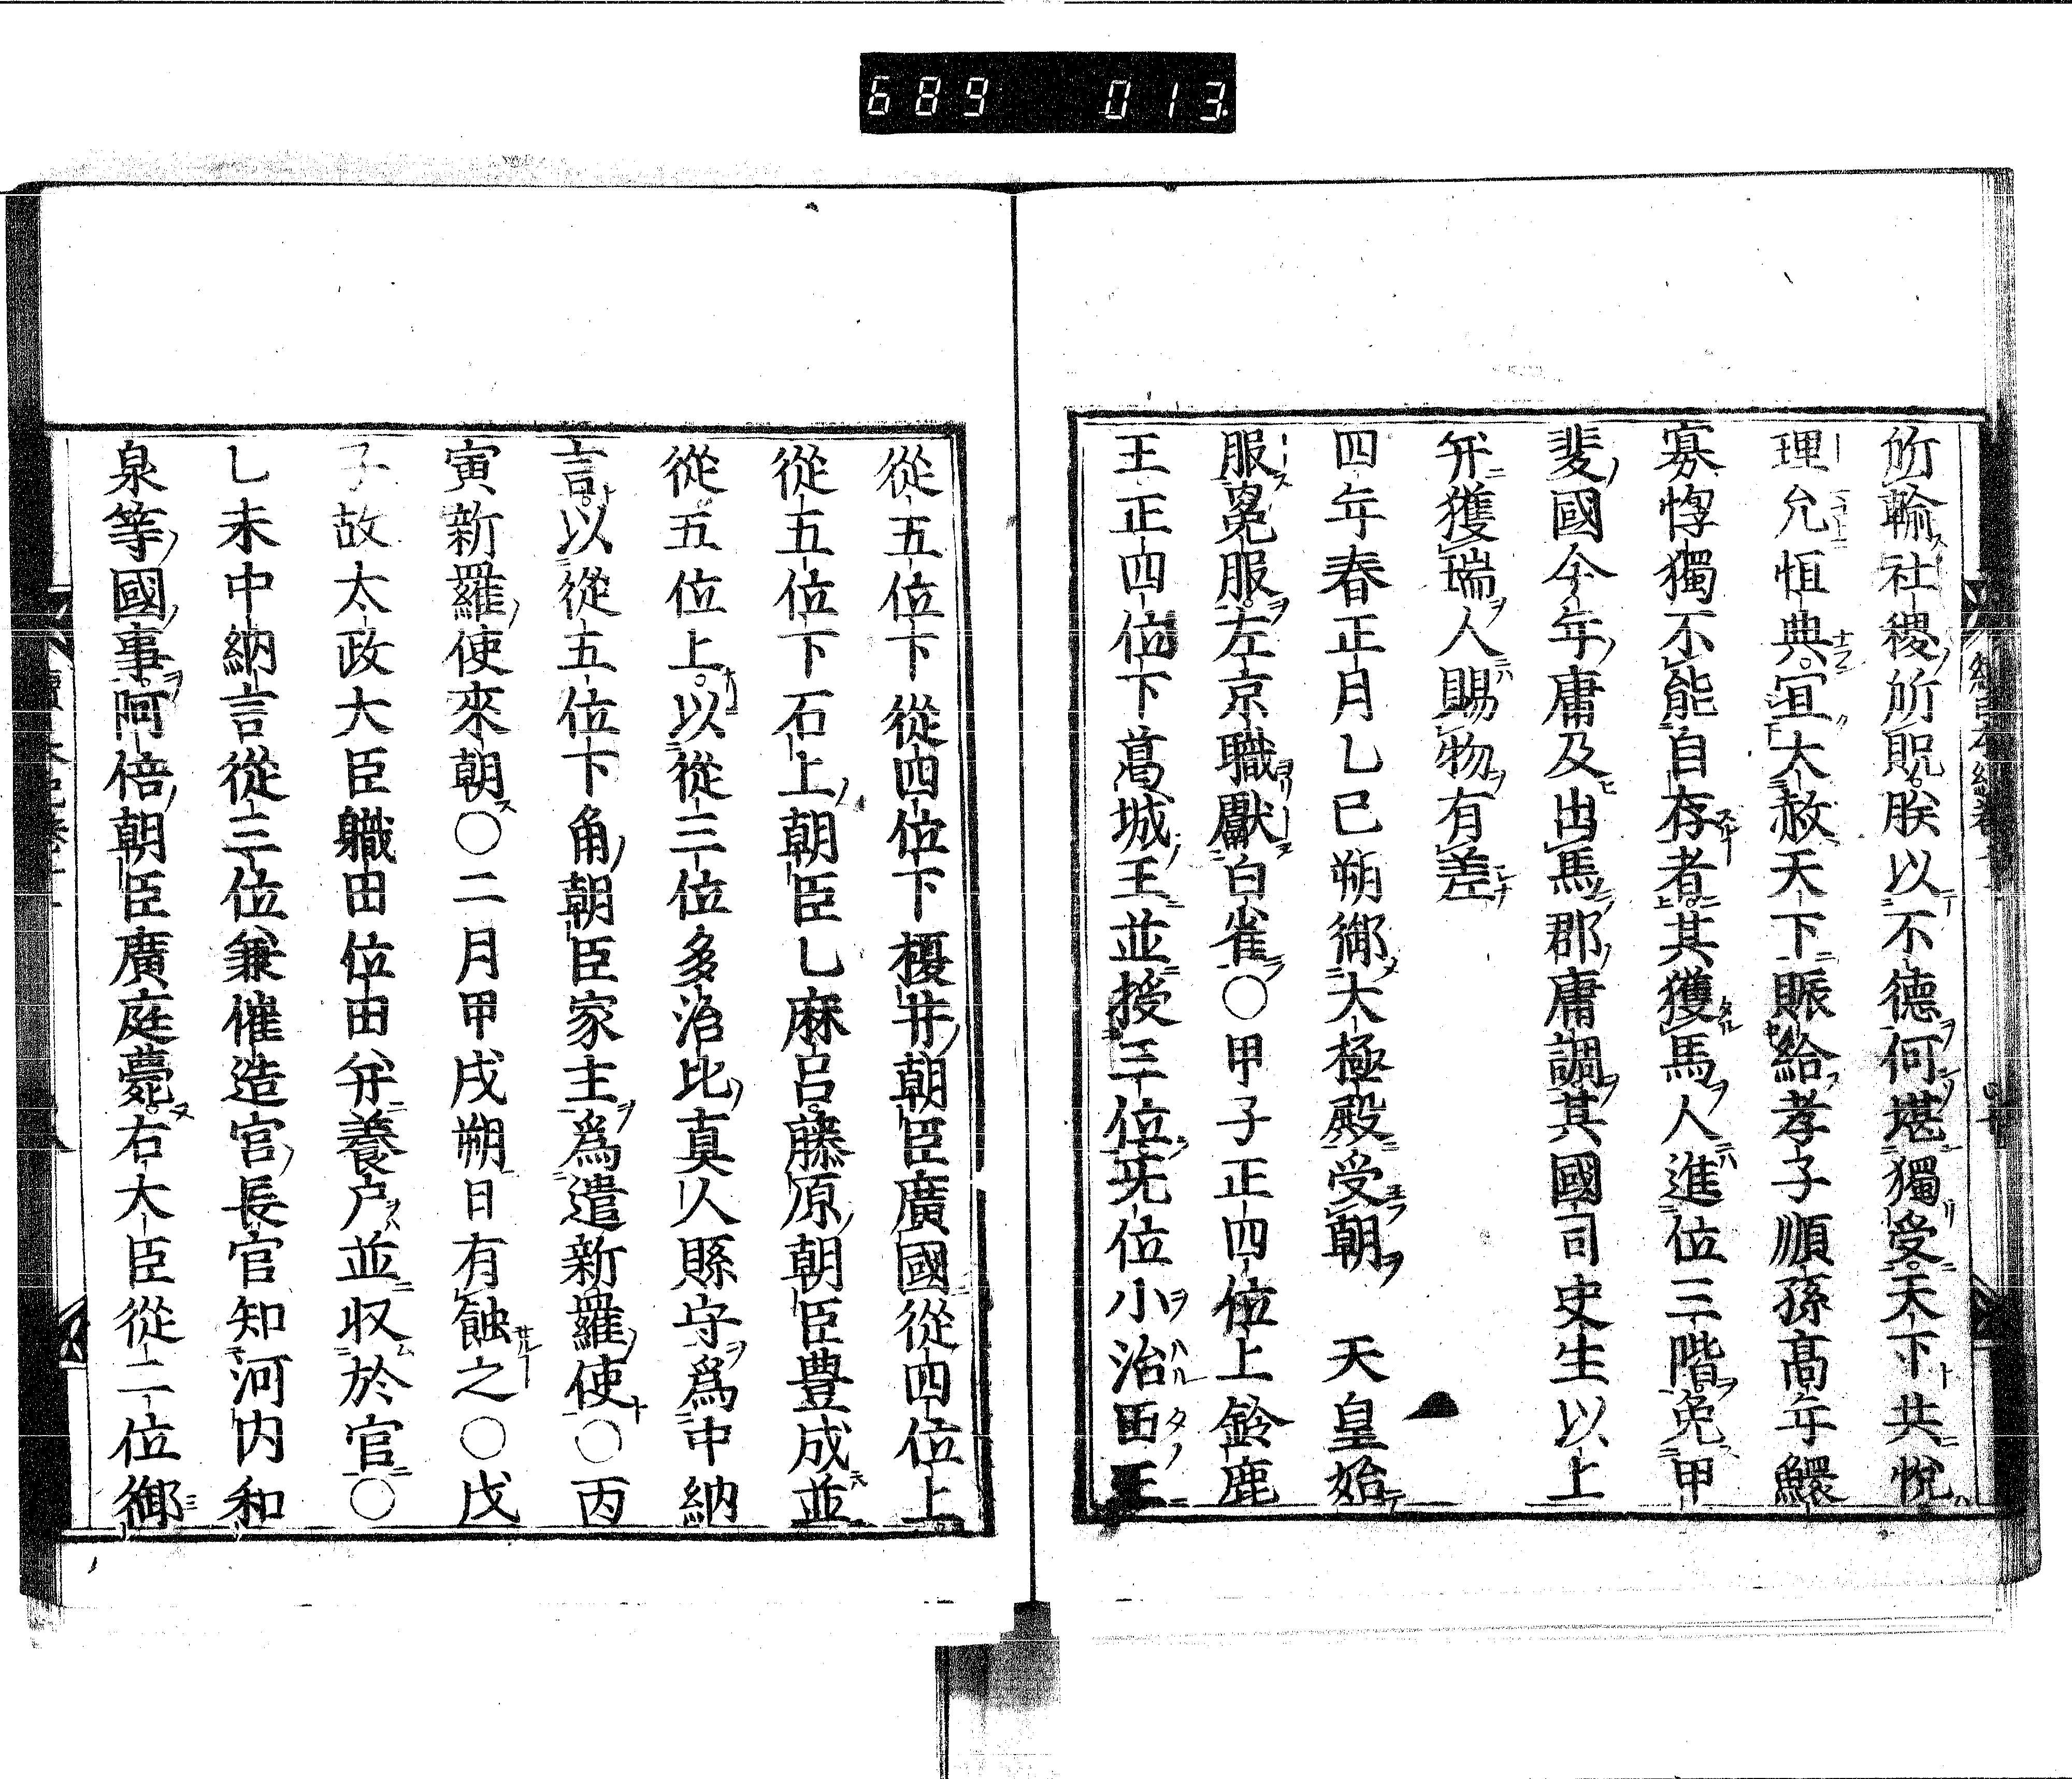 689 013
所輸社稷所貺朕以不德何堪獨受天下共悅
理允恒典宜大赦天下賑給孝子順孫髙年鰥
寡惸獨不能自存者其獲馬人進位三階免甲
斐國今年庸及出馬郡庸調其國司史生以上
并獲瑞人賜物有差
四年春正月乙巳朔御大極殿受朝　天皇始
服冕服左京職獻白雀〇甲子正四位上鈴鹿
王正四位下葛城王並授三位无位小治田王
從五位下從四位下榎井朝臣廣國從四位上
從五位下石上朝臣乙麻呂藤原朝臣豊成並
從五位上以從三位多治比真人縣守爲中納
言以從五位下角朝臣家主爲遣新羅使〇丙
寅新羅使來朝〇二月甲戌朔日有蝕之〇戊
子故太政大臣職田位田并養户並収於官〇
乙未中納言從三位兼催造官長官知河内和
泉等國事阿倍朝臣廣庭薨右大臣從二位御